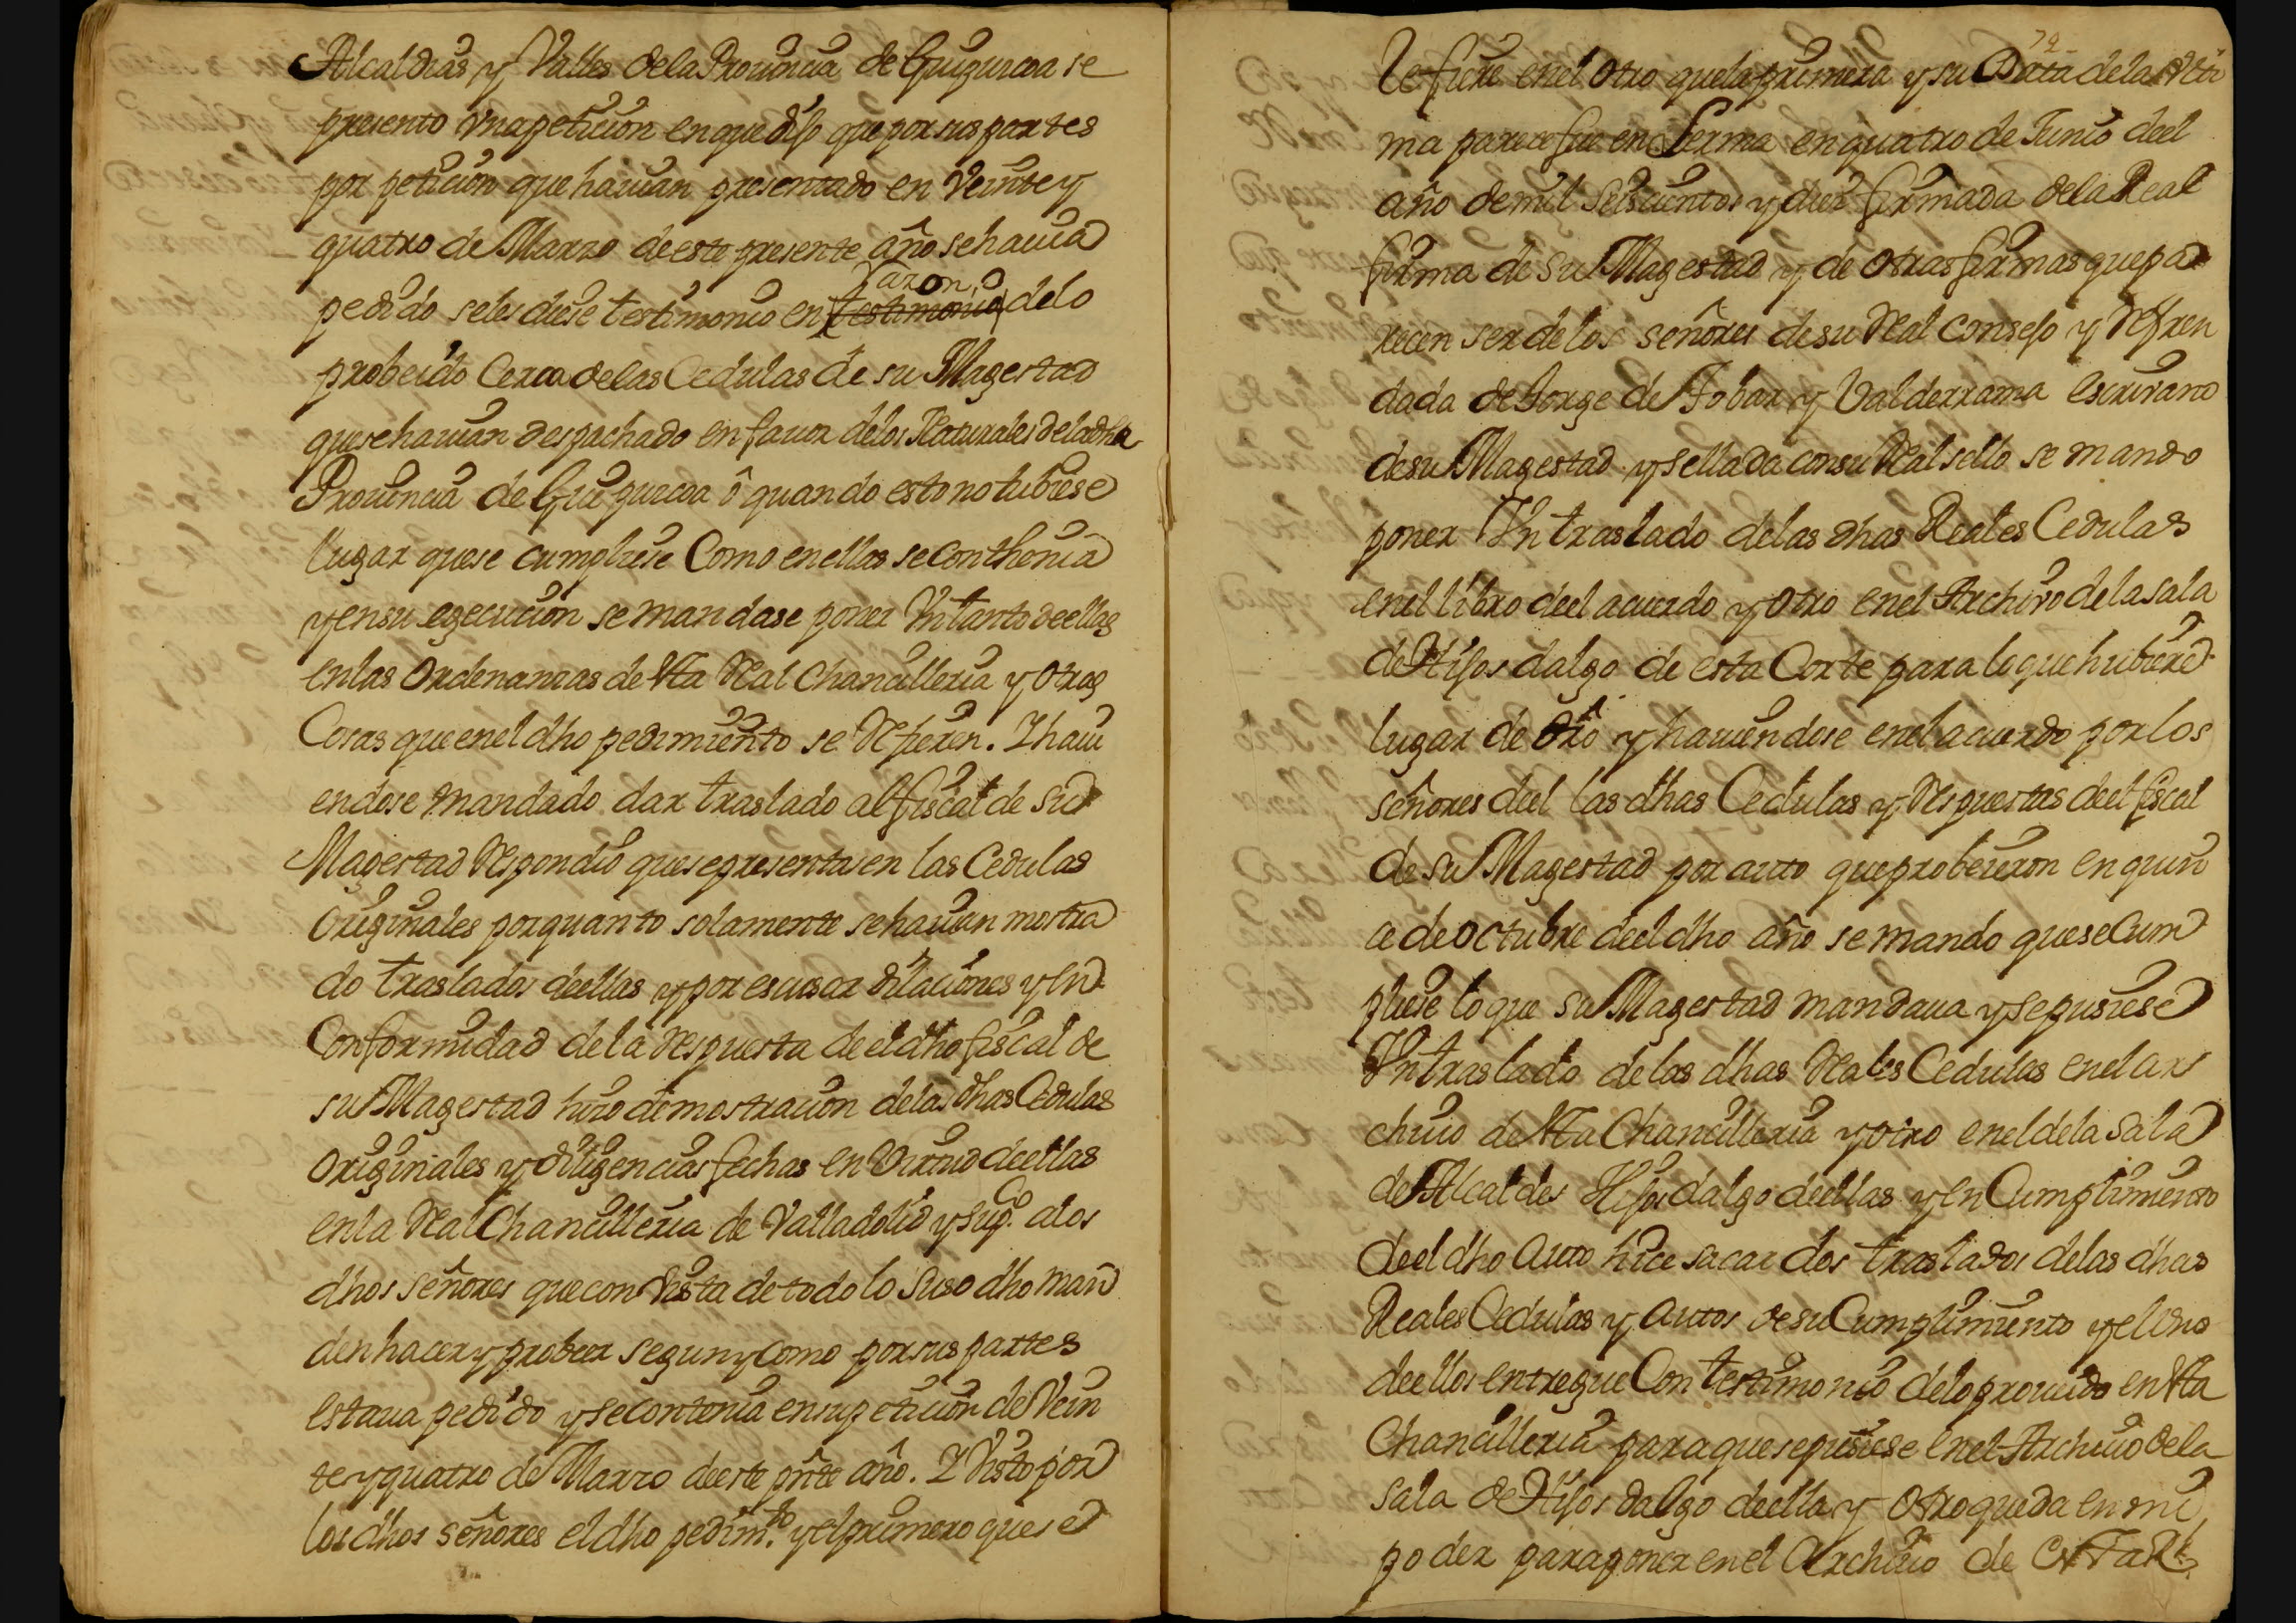 Alcaldias y Valles de la Prouincia de Guipuzcoa se
presento vna peticion en que dijo que por sus partes
por peticion que hauian presentado en Veinte y
quatro de Marzo de este presente año se hauia
razon
pedido seles diese testimonio en testimonio de lo
probeido Cerca de las Cedulas de su Magestad
que se hauian despachado en fauor de los Naturales de la dha
Prouincia de Guipuzcoa ô quando esto no tubiese
lugar que se cumpliese Como en ellas se conthenia
y en su egecucion se mandase poner Vn tanto de ellas
en las Ordenanzas de esta Real Chancilleria y otras
Cosas que en el dho pedimiento se Refieren. I haui
endose mandado dar traslado al fiscal de su
Magestad Respondio que se presentasen las Cedulas
Originales por quanto solamente se hauian mostra
do traslados de ellas y por escusar dilaciones y en
Conformidad de la Respuesta de el dho fiscal de
su Magestad hizo demostracion de las dhas Cedulas
Originales y diligencias fechas en Virtud de ellas
en la Real Chancilleria de Valladolid y Supco. a los
dhos señores que con Vista de todo lo Suso dho man
den hacer y probeer segun y como por sus partes
estaua pedido y se contenia en su peticion de Vein
te y quatro de Marzo de este pñte año. I Visto por
los dhos señores el dho pedimto. y el primero que se
72
Refiere en el otro que la primera y su Data de la vlti
ma parece fue en Lerma en quatro de Junio de el
año de mil Seiscientos y diez firmada de la Real
firma de su Magestad y de otras firmas que pa
recen ser de los señores de su Real Consejo y Refren
dada de Jorge de Tobar y Valderrama escrivano
de su Magestad y sellada con su Real sello se mando
poner Vn traslado de las dhas Reales Cedulas
en el libro de el acuerdo y otro en el Archivo de la sala
de Hijos dalgo de esta Corte para lo que hubiere
lugar de dro y hauiendose en el acuerdo por los
señores de el las dhas Cedulas y Respuestas de el fiscal
de su Magestad por auto que probeieron en quin
ce de octubre de el dho año se mando que se Cum
pliese lo que su Magestad mandaua y se pusiese
Vn traslado de las dhas Reales Cedulas en el ar
chiuo de esta Chancilleria y otro en el de la sala
de Alcaldes Hijos dalgo de ellas y en Cumplimiento
de el dho Auto hice sacar dos traslados de las dhas
Reales Cedulas y Autos de su Cumplimiento y el vno
de ellos entregue Con testimonio de lo proueido en esta
Chancilleria para que se pusiese en el Archiuo de la
sala de Hijos dalgo de ella y otro queda en mi
poder para poner en el Archiuo de esta Rl